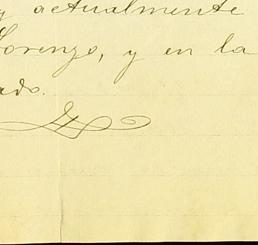 y actualmente
Lorenzo, y en la
ado.